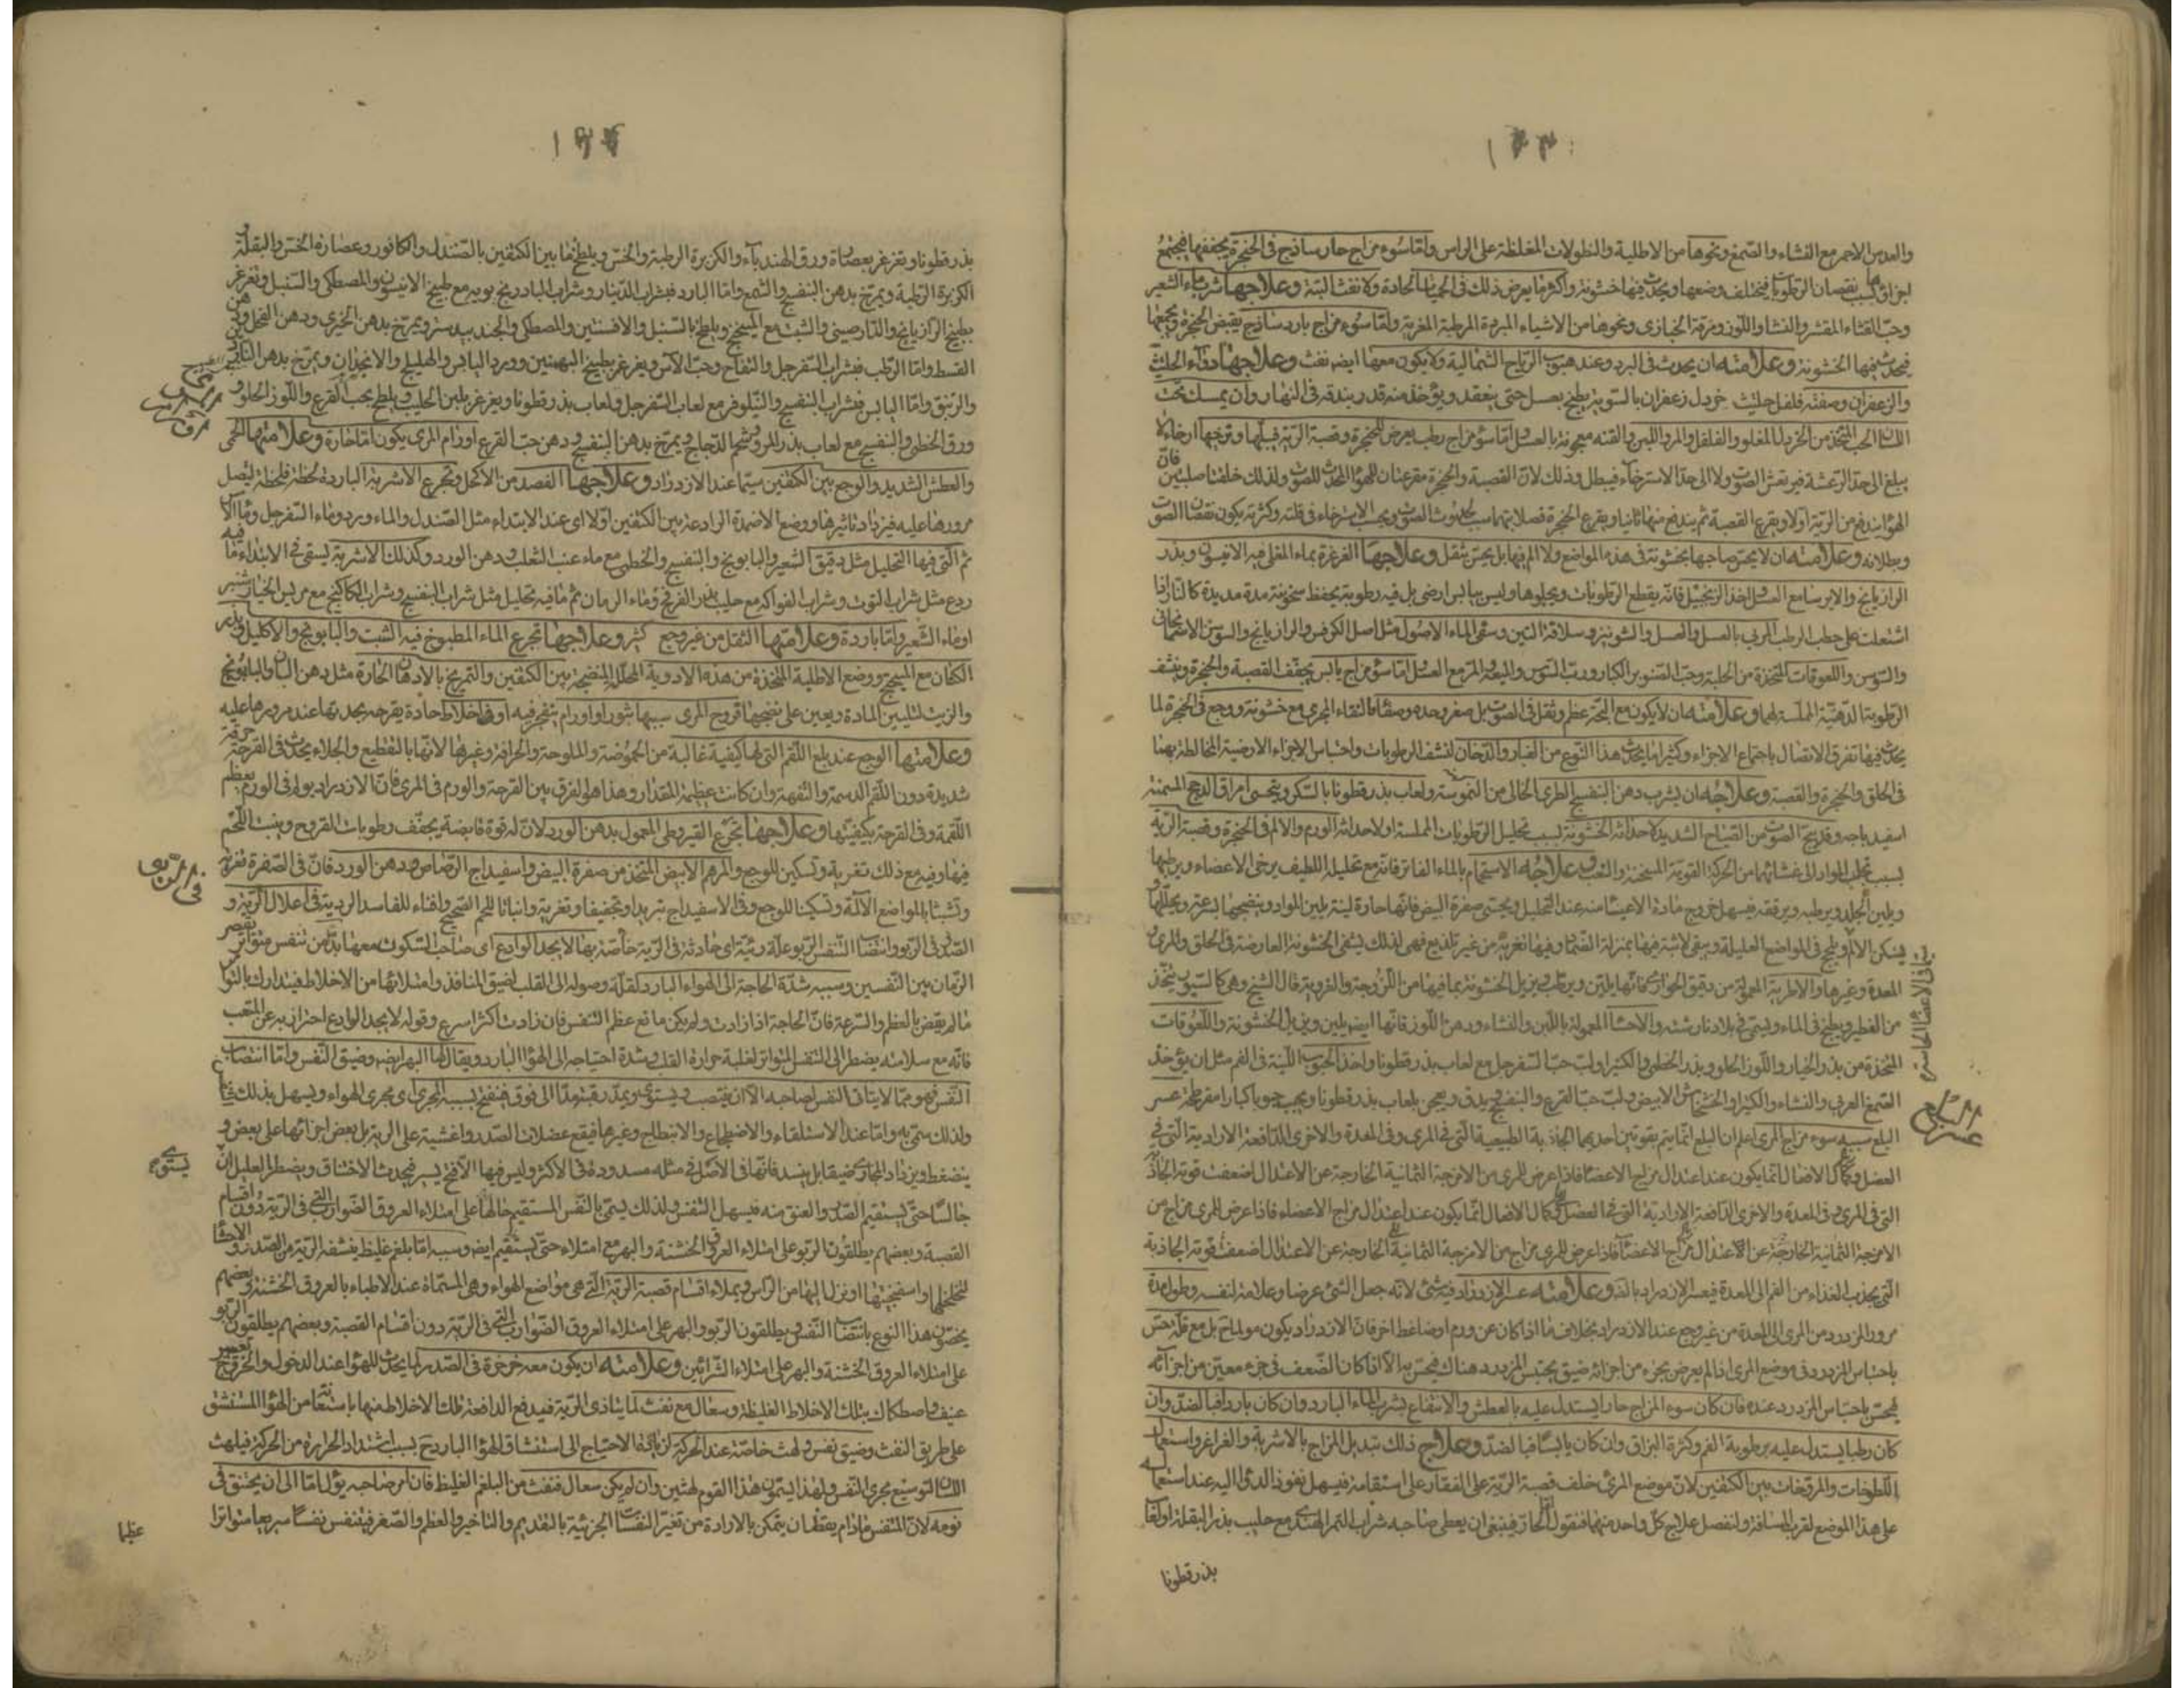 والعدس الاحمر مع النشاء والصمغ ونحوها من الاطلية والنطولات المغلظة على الراس واما سوء مزاج حار ساذج فى الحنجرة يجففها فيجتمع
اجزاؤها بسبب نقصان الرطوبات فيختلف وضعها ويحدث فيها خشونة واكثر ما يعرض ذلك فى الحميات الحادة ولا نفث البتة وعلاجها شرب ماء الشعير
وحب القثاء المقشر والنشا واللوز ومرقة الخبازى ونحوها من الاشياء المبردة المرطبة المغرية واما سوء مزاج بارد ساذج يقبض الحنجرة ويجمعها
فيحدث فيها الخشونة وعلامته ان يحدث فى البرد وعند هبوب الرياح الشمالية ولا يكون معها ايضا نفث وعلاجها دواء الحلتيت
والزعفران وصفته فلفل حلتيت خردل زعفران بالسوية يطبخ بعسل حتى ينعقد ويؤخذ منه قدر بندقة فى النهار وان يمسك تحت
اللسان الحب المتخذ من الخردل المغلو والفلفل والمر واللبن والقنه معجونة بالعسل واما سوء مزاج رطب يعرض للحنجرة وقصبة الرية فيبلها ويرخيها ارخاء لا
يبلغ الى حد الرعشة فيرتعش الصوت ولا الى حد الاسترخاء فيبطل وذلك لان القصبة والحنجرة مقرعتان للهواء المحدث للصوت ولذلك خلقتا صلبتين فان
الهواء يندفع من الرية اولا ويقرع القصبة ثم يندفع منها ثانيا ويقرع الحنجرة فصلابتهما سبب لحدوث الصوت وبحسب الاسترخاء فى قلته وكثرته يكون نقصان الصوت
وبطلانه وعلامته ان لا يحس صاحبها بخشونة فى هذه المواضع ولا الم فيها بل يحس بثقل وعلاجها الغرغرة بماء المغلى فيه الانيسون وبذر
الرازيانج والايرسا مع العسل اخذ الزنجبيل فانه يقطع الرطوبات ويجلوها وليس بيابس ارضى بل فيه رطوبة يحفظ سخونته مدة مديدة كالنار اذا
اشتعلت على حطب الرطب المربى بالعسل والعسل والشونيز وسلاقة التين وسقى الماء الاصول مثل اصل الكرفس والرازيانج والسوسن الاسمانجانى
والسوسن واللعوقات المتخذة من الحلبة وحب الصنوبر الكبار ورب السوس والميعة والمر مع العسل واما سوء مزاج يابس يجفف القصبة والحنجرة وينشف
الرطوبة الدهنية المملسة لهما وعلامته ان لا يكون مع البحة عظم وثقل فى الصوت بل صغر وحده وصفاء لنقاء المجرى مع خشونة ووجع فى الحنجرة لما
يحدث فيها تفرق الاتصال باجتماع الاجزاء وكثيرا ما يحدث هذا النوع من الغبار والدخان لنشف الرطوبات واحتباس الاجزاء الارضية المخالطة بهما
فى الحلق والحنجرة والقصبة وعلاجه ان يشرب دهن البنفسج الطرى الخالى من الحموسة ولعاب بذر قطونا بالسكر ويتحسى امراق الدجج المسمنة
اسفيدباجه وقد يبح الصوت من الصياح الشديد لاحداثه الخشونة بسبب تحليل الرطوبات المملسة او لاحداثه الورم والالم فى الحنجرة وقصبة الرية
بسبب تحلب المواد الى غشائهما من الحركة القوية المسخنة والتعب وعلاجه الاستحمام بالماء الفاتر فانه مع تحليله اللطيف يرخى الاعضاء ويرطبها
ويلين الجلد ويرطبه ويرققه فيسهل خروج مادة الاعياء منه عند التحليل ويحتسى صفرة البيض فانها حارة لينة يلين المواد وينضجها بسرعة ويحللها
فيسكن الالم ويلج فى المواضع العليلة ويبقى لابثة فيها بمنزلة الضماد وفيها تغرية من غير تلذيع فهى لذلك يشفى الخشونة العارضة فى الحلق والمرى و
المعدة وغيرها والاطرية المعمولة من دقيق الحوارى فانها يلين ويرطب ويزيل الخشونة بما فيها من اللزوجة والغروية قال الشيخ وهى كالسيور يتخذ
من الفطير ويطبخ فى الماء ويسمى فى بلادنا رشته والاحساء المعمولة باللبن والنشاء ودهن اللوز فانها ايضا يلين ويزيل الخشونة واللعوقات
المتخذة من بذر الخيار واللوز الحلو وبذر الخطمى والكثيرا ولب حب السفرجل مع لعاب بذر قطونا واخذ الحبوب اللينة فى الفم مثل ان يؤخذ
الصمغ العربى والنشاء والكثيرا والخشخاش الابيض ولب حب القرع والبنفسج ويدق ويعجن بلعاب بذر قطونا ويحبب حبوبا كبارا مفرطحة عسر
البلع سببه سوء مزاج المرى اعلم ان البلع انما يتم بقوتين احديهما الجاذبة الطبيعية التى فى المرى وفى المعدة والاخرى الدافعة الارادية التى فى
العضل وكمال الافعال انما يكون عند اعتدال مزاج الاعضاء فاذا عرض للمرى من الامزجة الثمانية الخارجة عن الاعتدال اضعفت قوته الجاذبة
التى فى المرى وفى المعدة والاخرى الدافعة الارادية التى فى العضل وكمال الافعال انما يكون عند اعتدال مزاج الاعضاء فاذا عرض للمرى مزاج من
الامزجة الثمانية الخارجة عن الاعتدال مزاج الاعضاء فاذا عرض للمرى مزاج من الامزجة الثمانية الخارجة عن الاعتدال اضعفت قوته الجاذبة
التى يجذب الغذاء من الفم الى المعدة فيعسر الازدراد بالغذاء وعلامته عسر الازدراد فيه شئ لانه جعل الشئ عرضا وعلامة لنفسه وطول مدة
مرور المزدرد من المرى الى المعدة من غير وجع عند الازدراد بخلاف ما اذا كان عن ورم او ضاغط اخر فان الازدراد يكون مولما بل مع قلة يحس
باحتباس المزدرد فى موضع المرى اذا لم يعرض بجزء من اجزائه ضيق يحتبس المزدرد هناك فيحس به الا اذا كان الضعف فى جزء معين من اجزائه
فيحس باحتباس المزدرد عنده فان كان سوء المزاج حارا يستدل عليه بالعطش والانتفاع بشرب الماء البارد وان كان باردا فبالضد وان
كان رطبا يستدل عليه برطوبة الفم وكثرة البزاق وان كان يابسا فبالضد وعلاج ذلك تبديل المزاج بالاشربة والغراغر واستعمال
اللطوخات والمروخات بين الكتفين لان موضع المرى خلف قصبة الرية على الفقار على استقامة فيسهل نفوذ الدواء اليه عند استعماله
على هذا الموضع لقرب المسافة ولنفصل علاج كل واحد منهما فنقول اما الحار فينبغى ان يعطى صاحبه شراب التمر الهندى مع حليب بذر البقلة او لعاب
بذر قطونا
بذر قطونا وتغرغر بعصارة ورق الهندباء والكزبرة الرطبة والخس ويلطخ ما بين الكتفين بالصندل والكافور وعصارة الخس والبقلة و
الكزبرة الرطبة ويمرخ بدهن البنفسج والشمع واما البارد فبشراب الدينار وشراب البادرنجبويه مع طبيخ الانيسون والمصطكى والسنبل وتغرغر
بطبيخ الرازيانج والدارصينى والشبت مع الميبختج ويلطخ بالسنبل والافسنتين والمصطكى والجندبيدستر ويمرخ بدهن الخيرى ودهن الفجل ودهن
القسط واما الرطب فبشراب السفرجل والتفاح وحب الآس ويغرغر بطبيخ البهمنين وورد اليابس والهليلج والانجدان ويمرخ بدهن الناردين
والزنبق واما اليابس فبشراب البنفسج والنيلوفر مع لعاب السفرجل ولعاب بذر قطونا ويغرغر بلبن الحليب ويلطخ بحب القرع واللوز الحلو و
ورق الخطمى والبنفسج مع لعاب بذر المرو وشحم الدجاج ويمرخ بدهن البنفسج ودهن حب القرع اورام المرى يكون اما حارة وعلامتها الحمى
والعطش الشديد والوجع بين الكتفين سيما عند الازدراد وعلاجها الفصد من الاكحل وتجرع الاشربة الباردة لحظة فلحظة ليصل
مرورها عليه فيزداد تاثيرها ووضع الاضمدة الرادعة بين الكتفين اولا اى عند الابتداء مثل الصندل والماء ورد وماء السفرجل وماء الآس
ثم التى فيها التحليل مثل دقيق الشعير والبابونج والبنفسج والخطمى مع ماء عنب الثعلب ودهن الورد وكذلك الاشربة يسقى فى الابتداء ما فيه
ردع مثل شراب التوت وشراب الفواكه مع حليب بذر الفرفخ وماء الرمان ثم ما فيه تحليل مثل شراب البنفسج وشراب الكاكنج مع مريس الخيارشنبر
او ماء الشعير واما باردة وعلامتها الثقل من غير وجع كثير وعلاجها تجرع الماء المطبوخ فيه الشبت والبابونج والاكليل وبذر
الكتان مع الميبختج ووضع الاطلية المتخذة من هذه الادوية المحللة المنضجة بين الكتفين والتمريخ بالادهان الحارة مثل دهن البان والبابونج
والزيت لتليين المادة ويعين على نضجها قروح المرى سببها بثور او اورام ينفجر فيه او اخلاط حادة يقرحه بحدتها عند مرورها عليه
وعلامتها الوجع عند بلع اللقم التى لها كيفية غالبة من الحموضة والملوحة والحرافة وغيرها لانها بالتقطيع والجلاء يحدث فى القرحة حرقة
شديدة دون اللقم الدسمة والتفهة وان كانت عظيمة المقدار وهذا هو الفرق بين القرحة والورم فى المرى فان الازدراد يولم فى الورم بعظم
اللقمة وفى القرحة بكيفيتها وعلاجها تجرع القيروطى المعمول بدهن الورد لان له قوة قابضة يجفف رطوبات القروح وينبت اللحم
فيها وفيه مع ذلك تغرية وتسكين للوجع والمرهم الابيض المتخذ من صفرة البيض واسفيداج الرصاص ودهن الورد فان فى الصفرة تغرية
وتشبثا بالمواضع الآلمة وتسكينا للوجع وفى الاسفيداج تبريدا وتجفيفا وتغرية وانباتا للحم الصحيح وافناء للفاسد الردى فى اعلال الرية و
الصدر فى الربو وانتصاب النفس الربو علة رئية اى حادثة فى الرية خاصة بها لا يجد الوادع اى صاحب السكون معها بدا من نفس متواتر يقصر
الزمان بين النفسين وسببه شدة الحاجة الى الهواء البارد لقلة وصوله الى القلب لضيق المنافذ وامتلائها من الاخلاط فيتدارك بالتواتر
ما لم يقض بالعظم والسرعة فان الحاجة اذا زادت ولم يكن مانع عظم النفس فان زادت اكثر اسرع وقوله لا يجد الوادع احتراز به عن المتعب
فانه مع سلامته يضطر الى التنفس المتواتر لغلبة حرارة القلب وشدة احتياجه الى الهواء البارد ويقال لها البهر ايضا وضيق النفس واما انتصاب
النفس فهو مما لا يتاتى النفس لصاحبه الا ان ينتصب ويستوى ويمد رقبته مدا الى فوق فينفتح بسببه المجرى اى مجرى الهواء ويسهل بذلك
ولذلك سمى به واما عند الاستلقاء والاضطجاع والانبطاح وغيرها فيقع عضلات الصدر واغشيته على الرية بل بعض اجزائها على بعض و
ينضغط ويزداد المجارى ضيقا بل ينسد فانها فى الاصل فى مثله مسدودة فى الاكثر وليس فيها الا فتح يسير فيحدث الاختناق ويضطر العليل ان
جالسا حتى يستقيم الصدر والعنق منه فيسهل التنفس ولذلك يسمى بالنفس المستقيم
القصبة وبعضهم يطلقون الربو على امتلاء العروق الخشنة والبهر مع امتلاء حتى يستقيم ايضا وسببه اما بلغم غليظ ينشفه الرية من الصدر و
لتخلخلها واسفنجيتها او نزل اليها من الراس ويملاء اقسام قصبة الرية التى هى مواضع الهواء وهى المسماة عند الاطباء بالعروق الخشنة وبعضهم
يخصون هذا النوع بانتصاب النفس ويطلقون الربو والبهر على امتلاء العروق الضوارب التى فى الرية دون اقسام القصبة وبعضهم يطلقون الربو
على امتلاء العروق الخشنة والبهر على امتلاء الشرائين وعلامته ان يكون معه خرخرة فى الصدر لما يحدث للهواء عند الدخول والخروج
عنيف واصطكاك بتلك الاخلاط الغليظة وسعال مع نفث لما يتاذى الرية فيدفع الدافعة تلك الاخلاط منها باستعانتها من الهواء المستنشق
على طريق النفث وضيق نفس ولهث خاصة عند الحركة لزيادة الاحتياج الى استنشاق الهواء البارد ح بسبب اشتداد الحرارة من الحركة فيلهث
اللسان لتوسيع مجرى النفس ولهذا يسمون هذا القوم لهثين وان لم يكن سعال فنفث من البلغم الغليظ فان امر صاحبه يؤل اما الى ان يختنق فى
نومه لان المتنفس ما دام يقظان يتمكن بالارادة من تغير النفسات الجزئية بالتقديم والتاخير والعظم والصغر فيتنفس نفسا سريعا متواترا
عظيما